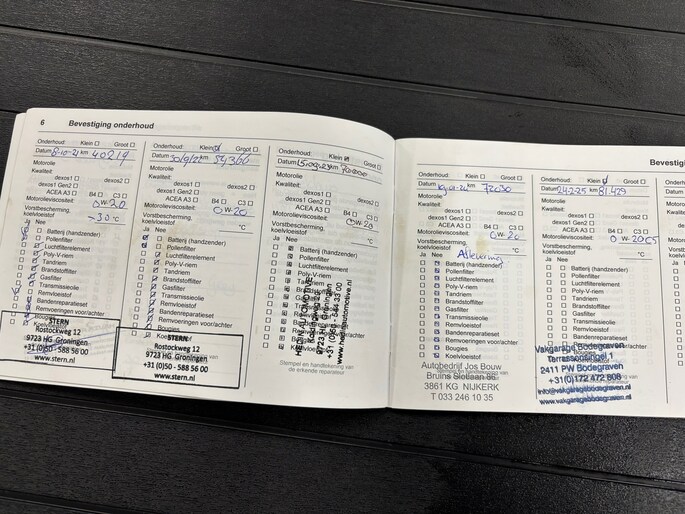 6 Bevestiging onderhoud
Onderhoud: Klein Groot
Datum 8-10-21 km 40219
Motorolie
Kwaliteit:
dexos1 dexos2
dexos1 Gen2 B4 C3
ACEA A3
Motorolieviscositeit: 0W-20
Vorstbescherming,
koelvloeistof -30 °C
Ja Nee
Batterij (handzender)
Pollenfilter
Luchtfilterelement
Poly-V-riem
Tandriem
Brandstoffilter
Gasfilter
Transmissieolie
Remvloeistof
Bandenreparatieset
Remvoeringen voor/achter
Bougies
STERN
Rostockweg 12
9723 HG Groningen
+31 (0)50 - 588 56 00
www.stern.nl
Onderhoud: Klein Groot
Datum 30/9/22 km
Motorolie
Kwaliteit:
dexos1 dexos2
dexos1 Gen2 B4 C3
ACEA A3
Motorolieviscositeit: 0W-20
Vorstbescherming,
koelvloeistof °C
Ja Nee
Batterij (handzender)
Pollenfilter
Luchtfilterelement
Poly-V-riem
Tandriem
Brandstoffilter
Gasfilter
Transmissieolie
Remvloeistof
Bandenreparatieset
Remvoeringen voor/achter
Bougies
STERN
Rostockweg 12
9723 HG Groningen
+31 (0)50 - 588 56 00
www.stern.nl
Onderhoud: Klein Groot
Datum km
Motorolie
Kwaliteit:
dexos1 dexos2
dexos1 Gen2 B4 C3
ACEA A3
Motorolieviscositeit: 0W-20
Vorstbescherming,
koelvloeistof °C
Ja Nee
Batterij (handzender)
Pollenfilter
Luchtfilterelement
Poly-V-riem
Tandriem
Brandstoffilter
AUTOMOTIVE
Groningen
www.hedinautomotive.nl
Stempel en handtekening van
de erkende reparateur
Bevestig
Onderhoud: Klein Groot
Datum km 72030
Motorolie
Kwaliteit:
dexos1 dexos2
dexos1 Gen2 B4 C3
ACEA A3
Motorolieviscositeit: 0W-20
Vorstbescherming,
koelvloeistof °C
Ja Nee Aflevering
Batterij (handzender)
Pollenfilter
Luchtfilterelement
Poly-V-riem
Tandriem
Brandstoffilter
Gasfilter
Transmissieolie
Remvloeistof
Bandenreparatieset
Remvoeringen voor/achter
Bougies
Koelvloeistof
Autobedrijf Jos Bouw
Bruins Slotlaan 86
3861 KG NIJKERK
T 033 246 10 35
Onderhoud: Klein Groot
Datum 24-2-25 km 81.429
Motorolie
Kwaliteit:
dexos1 dexos2
dexos1 Gen2 B4 C3
ACEA A3
Motorolieviscositeit: 0W-20C5
Vorstbescherming,
koelvloeistof °C
Ja Nee
Batterij (handzender)
Pollenfilter
Luchtfilterelement
Poly-V-riem
Tandriem
Brandstoffilter
Gasfilter
Transmissieolie
Remvloeistof
Bandenreparatieset
Remvoeringen voor/achter
Bougies
Koelvloeistof
Vakgarage Bodegraven
Terrassingel 1
2411 PW Bodegraven
+31(0)172 472 808
info@vakgaragebodegraven.nl
www.vakgaragebodegraven.nl